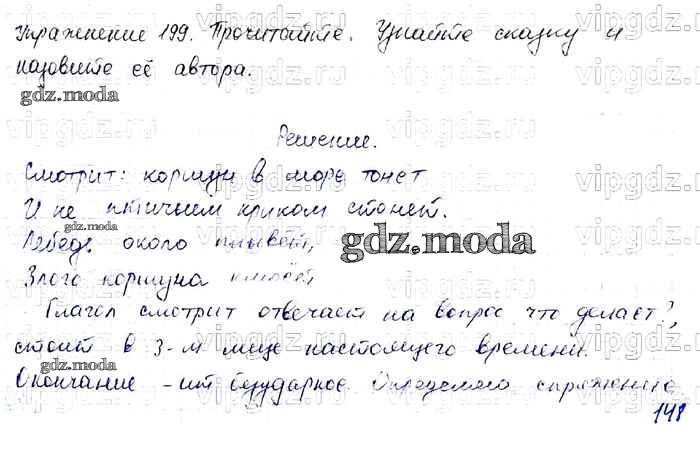 Упражнение 199. Прочитайте. Узнайте сказку и
назовите её автора.
Решение.
Смотрит: коршун в море тонет
И не птичьим криком стонет.
Лебедь около плывёт,
Злого коршуна клюёт,
Глагол смотрит отвечает на вопрос что делает?,
стоит в 3-м лице настоящего времени.
Окончание -ит безударное. Определяю спряжение
148
gdz.moda
gdz.moda
gdz.moda
gdz.moda
vipgdz.ru